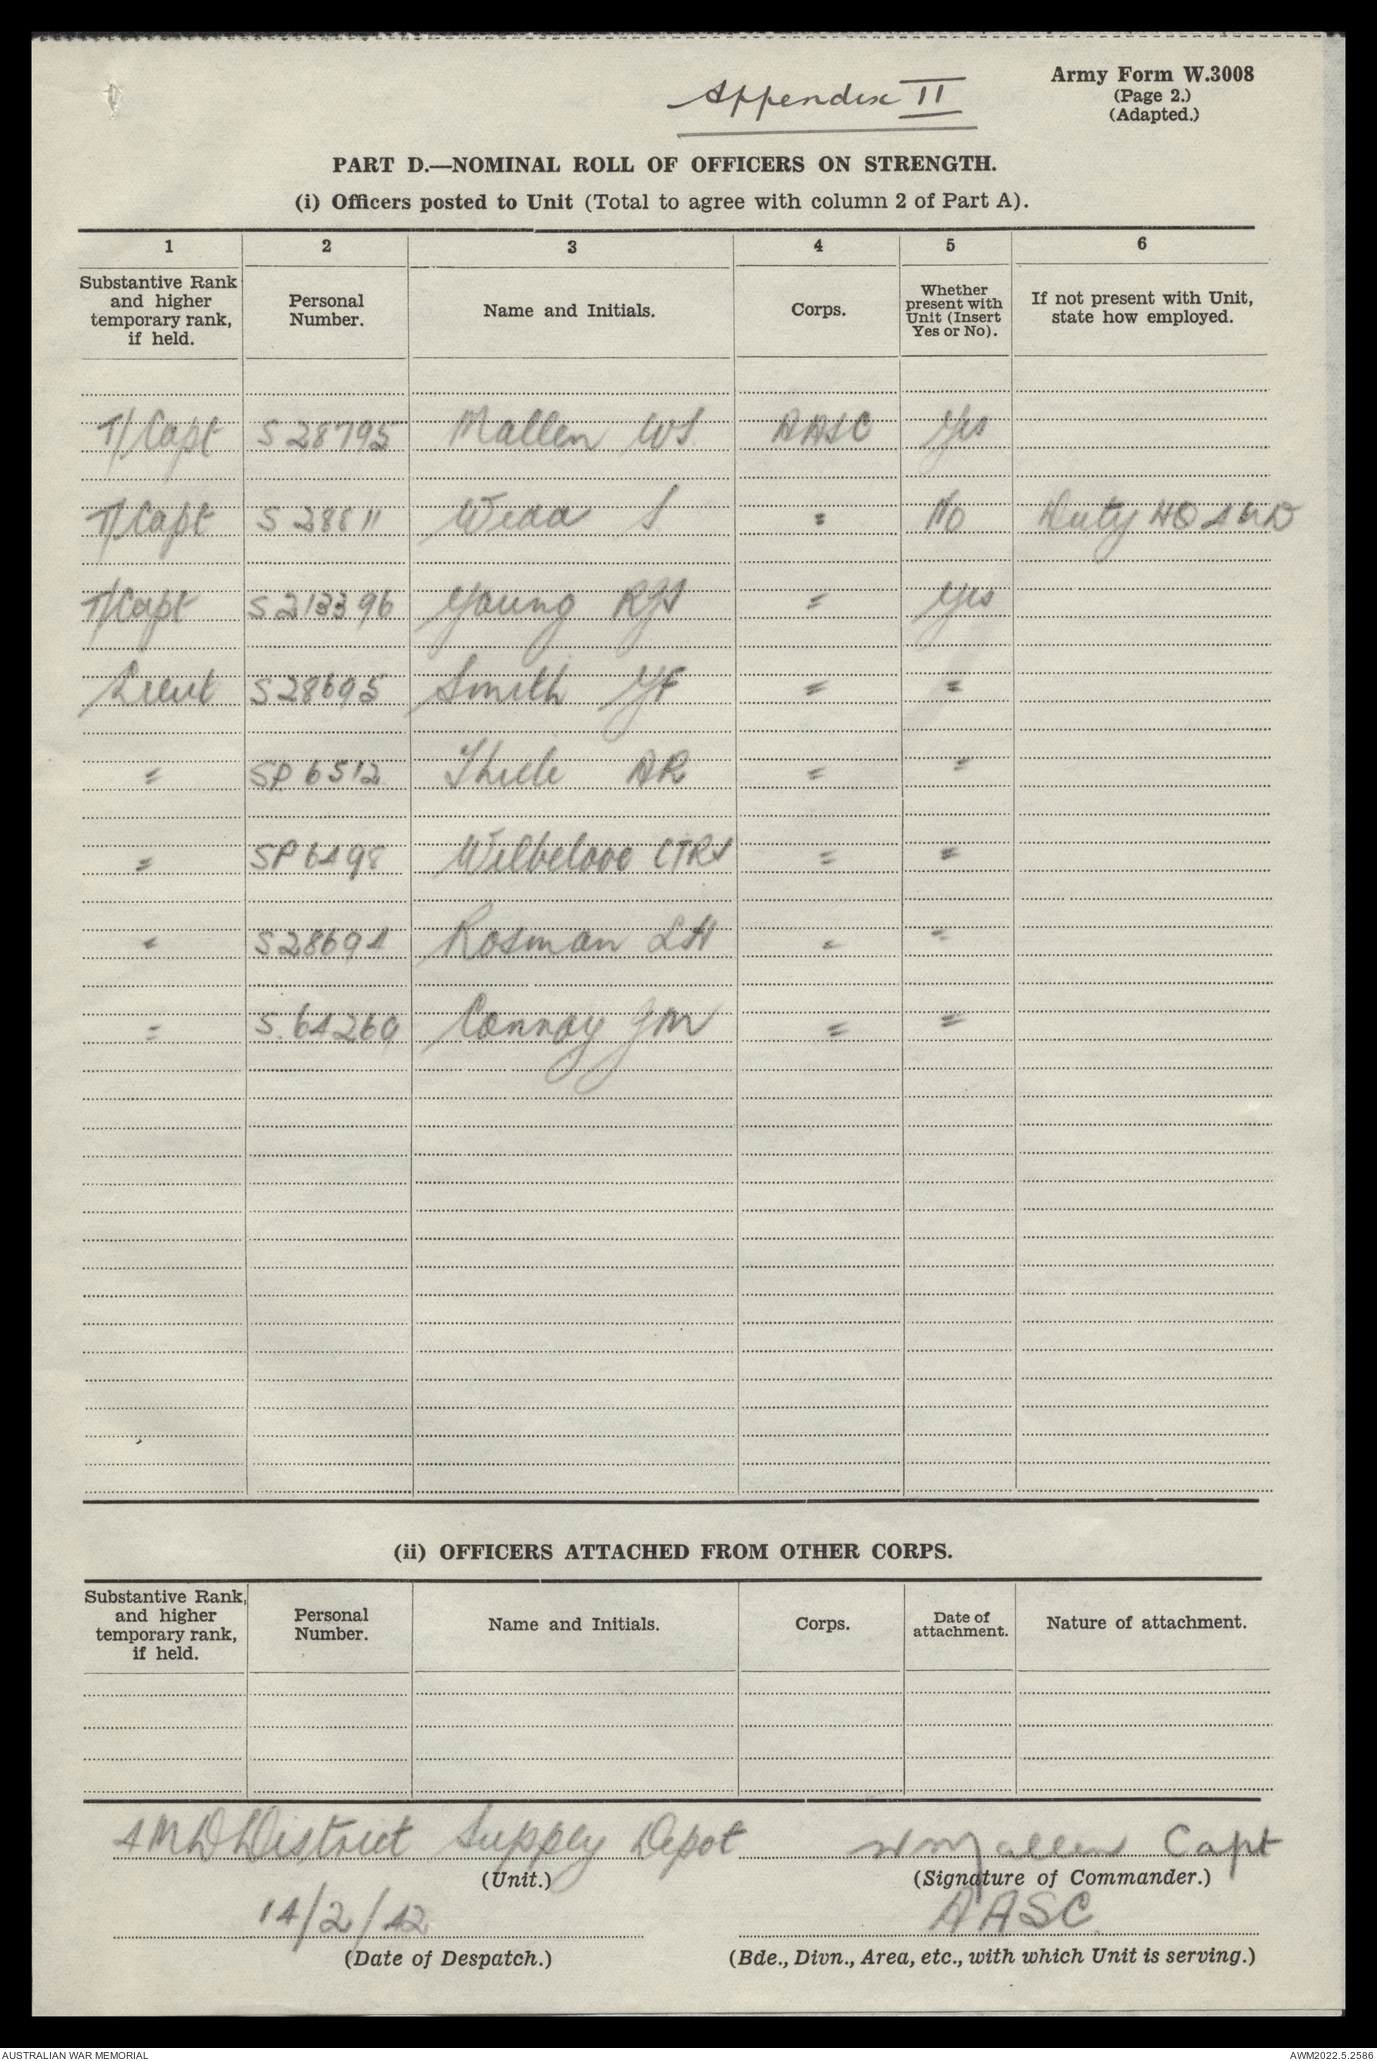 Appendix II
Army Form W.3008
(Page 2.)
(Adapted.)
PART D.—NOMINAL ROLL OF OFFICERS ON STRENGTH.
(i) Officers posted to Unit (Total to agree with column 2 of Part A).
1 2 3 4 5 6
Substantive Rank and higher temporary rank, if held. Personal Number. Name and Initials. Corps. Whether present with Unit (Insert Yes or No). If not present with Unit, state how employed.
T/Capt S 28795 Mallen WS. AASC Yes
T/Capt S 28811 S. " No Duty HQ 4 MD
T/Capt S 213396 Young RJS " Yes
Lieut S 28695 Smith " "
" SP 6512 Thiele AR " "
" SP 6498 Welbelove " "
" S 28694 Rosman LH " "
" S. 64269 JM " "
(ii) OFFICERS ATTACHED FROM OTHER CORPS.
Substantive Rank, and higher temporary rank, if held. Personal Number. Name and Initials. Corps. Date of attachment. Nature of attachment.
4 MD District Supply Depot W Mallen Capt
(Unit.) (Signature of Commander.)
14/2/42 AASC
(Date of Despatch.) (Bde., Divn., Area, etc., with which Unit is serving.)
AUSTRALIAN WAR MEMORIAL AWM2022.5.2586